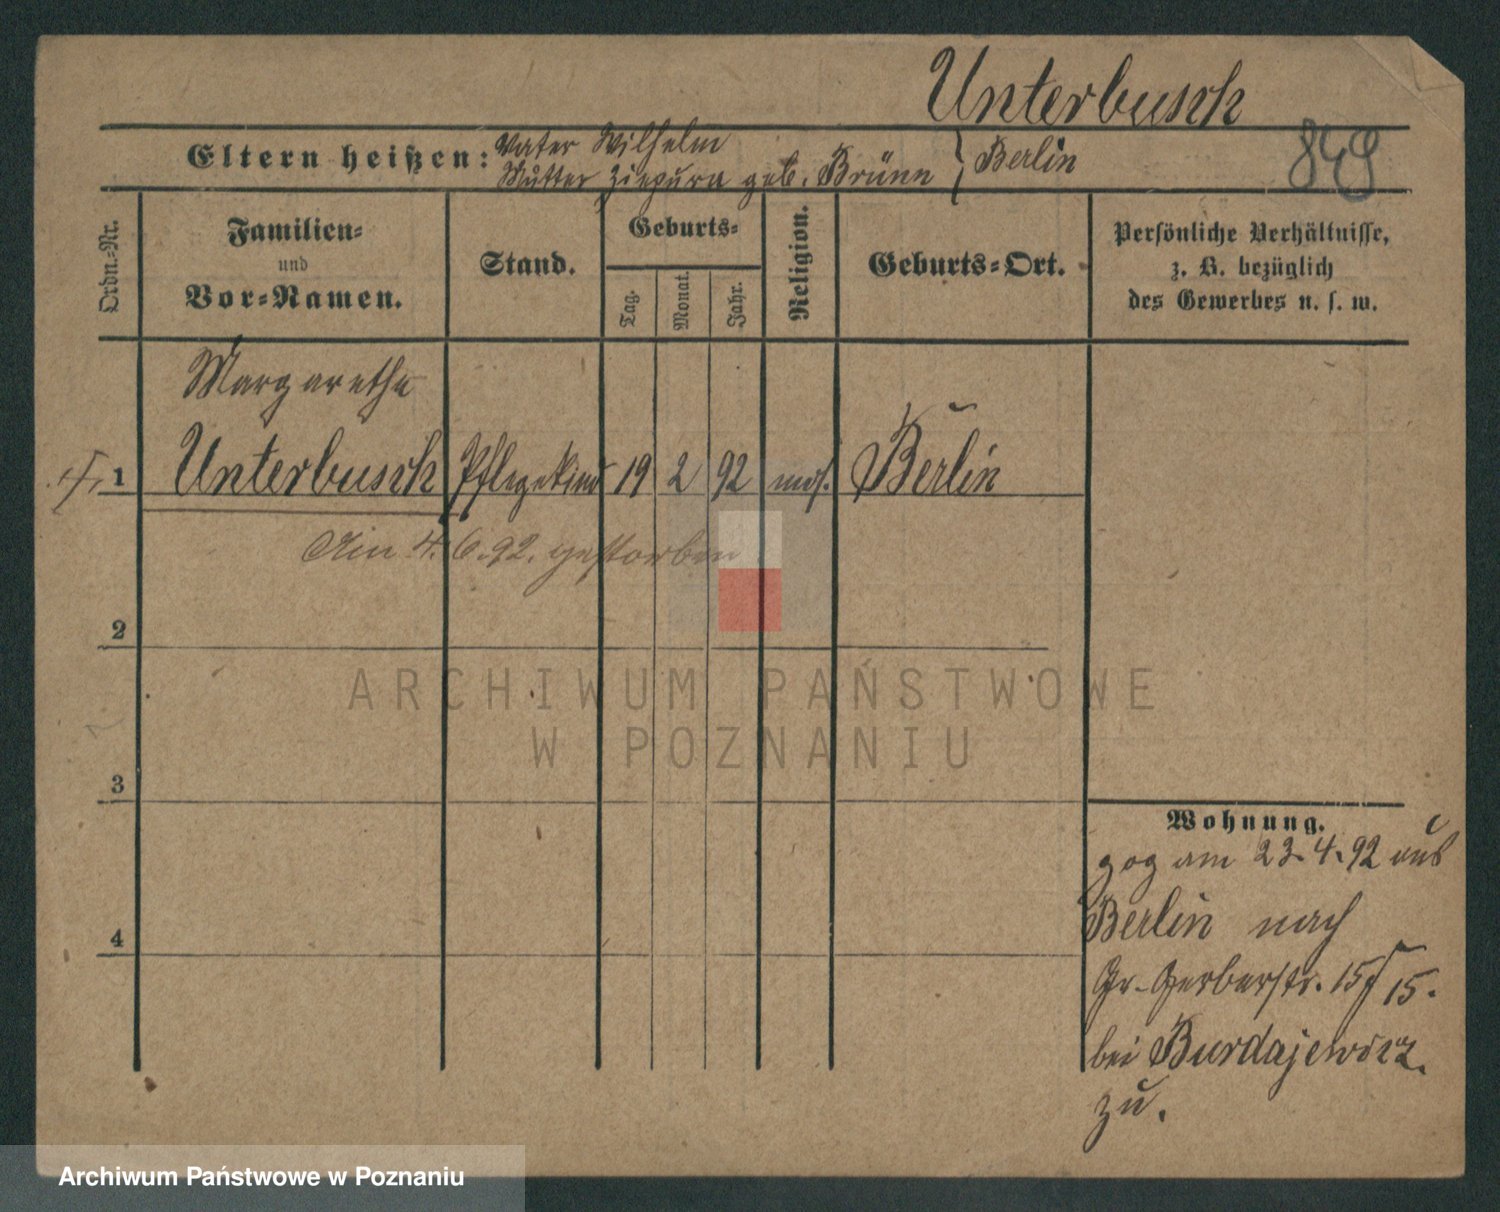 Unterbusch
849
Eltern heißen: Vater Wilhelm
Mutter geb. Brünn } Berlin
Ordn.-Nr.
Familien-
und
Vor-Namen.
Stand.
Geburts-
Tag.
Monat.
Jahr.
Religion.
Geburts-Ort.
Persönliche Verhältnisse,
z. B. bezüglich
des Gewerbes u. s. w.
Margarethe
1 Unterbusch Pflegekind 19 2 92 mos. Berlin
Am 4.6.92. gestorben.
2
3
4
Wohnung.
zog am 23.4.92 aus
Berlin nach
Gr. Gerberstr. 15 15.
bei Burdajewicz.
zu.
ARCHIWUM PAŃSTWOWE
W POZNANIU
Archiwum Państwowe w Poznaniu